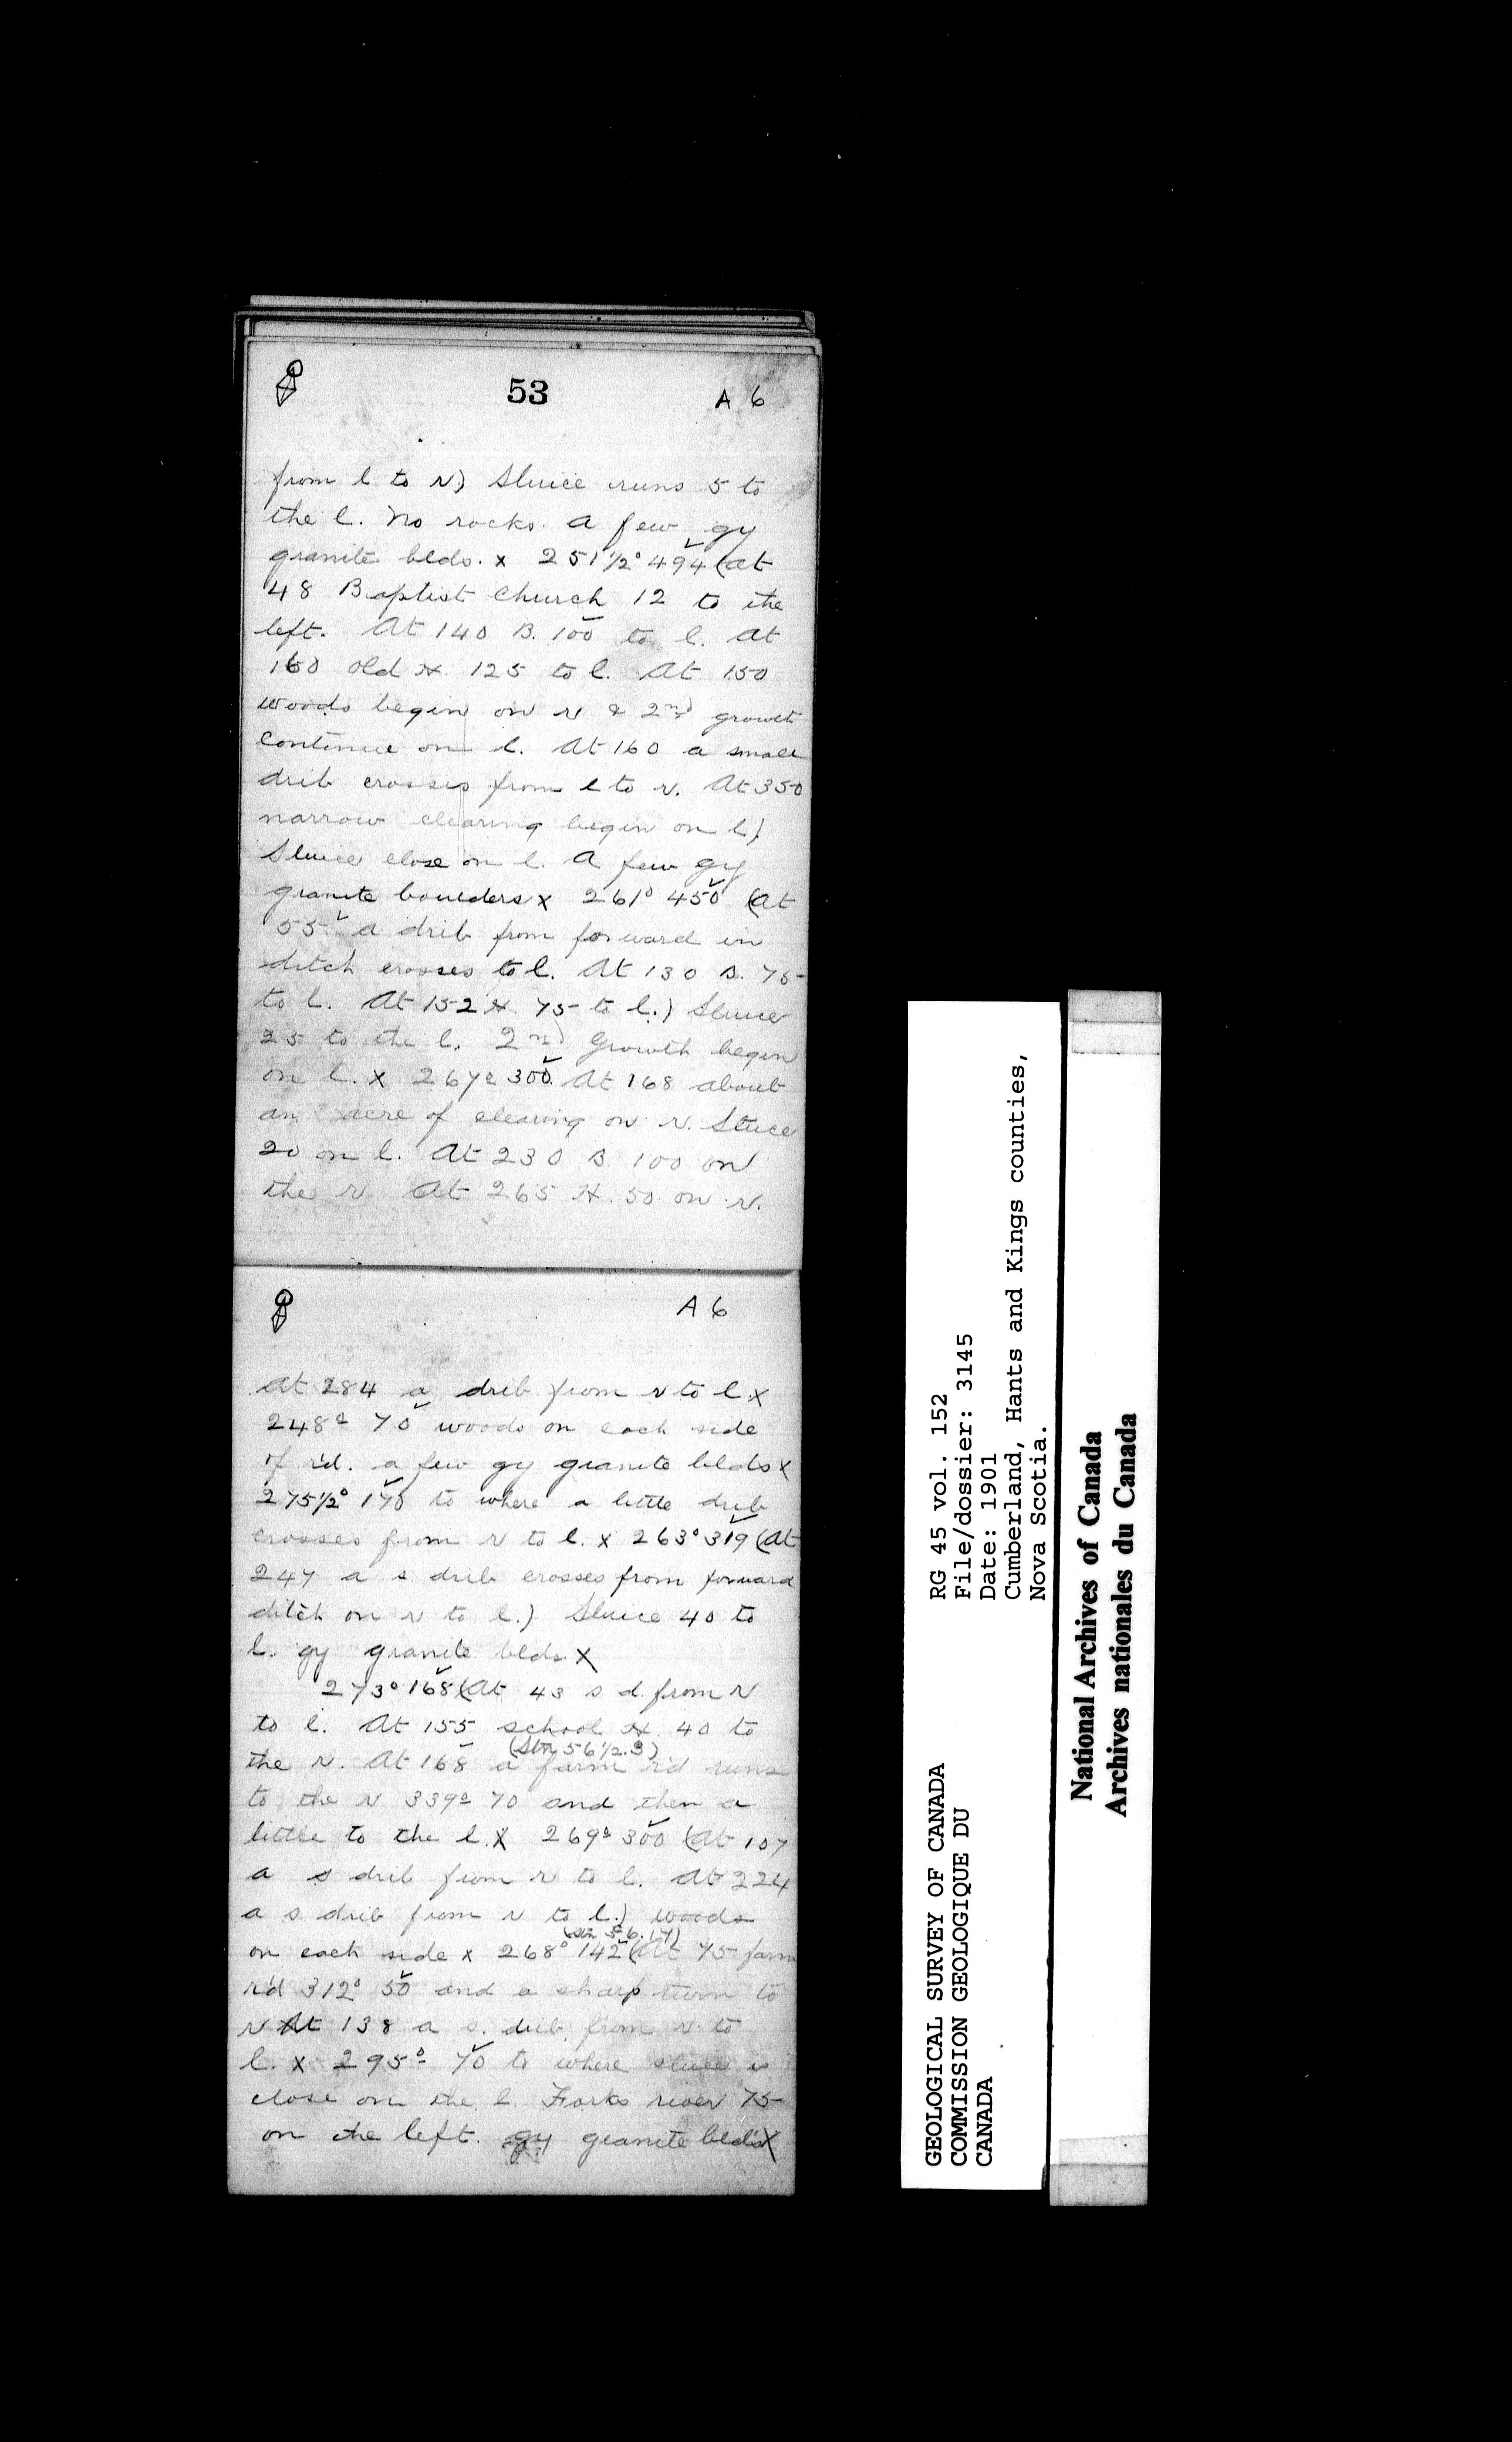 53
A 6
from l to r) Sluice runs 5 to
the l. No rocks. A few gy
granite blds. x 251½° 494 (at
48 Baptist Church 12 to the
left. At 140 B. 100 to l. At
160 old H. 125 to l. At 150
woods begin on r & 2nd growth
continue on l. At 160 a small
drib crosses from l to r. At 350
narrow clearing begin on l)
Sluice close on l. A few gy
granite boulders x 261° 450 (At
55 a drib from forward in
ditch crosses to l. At 130 B. 75
to l. At 152 H. 75 to l.) Sluice
25 to the l. 2nd Growth begin
on l. x 267° 300. At 168 about
an acre of clearing on r. Sluice
20 on l. At 230 B 100 on
the r At 265 H. 50 on r.
A 6
At 284 a drib from r to l x
248° 70 woods on each side
of r'd. a few gy granite blds x
275½° 170 to where a little drib
crosses from r to l. x 263° 319 (At
247 a s drib crosses from forward
ditch on r to l.) Sluice 40 to
l. gy granite blds. x
273° 168 (At 43 s d. from r
to l. At 155 school H. 40 to
(Stn 56½.3)
the r. At 168 a farm r'd runs
to the r 339° 70 and then a
little to the l. x 269° 300 (At 107
a s drib from r to l. At 224
a s drib from r to l.) woods
(stn 56.17)
on each side x 268° 142 (At 75 farm
r'd 312° 50 and a sharp turn to
r At 138 a s. drib from r to
l. x 295° 70 to where sluice is
close on the l. Forks river 75
on the left. gy granite blds x
GEOLOGICAL SURVEY OF CANADA
COMMISSION GEOLOGIQUE DU
CANADA
RG 45 vol. 152
File/dossier: 3145
Date: 1901
Cumberland, Hants and Kings counties,
Nova Scotia.
National Archives of Canada
Archives nationales du Canada